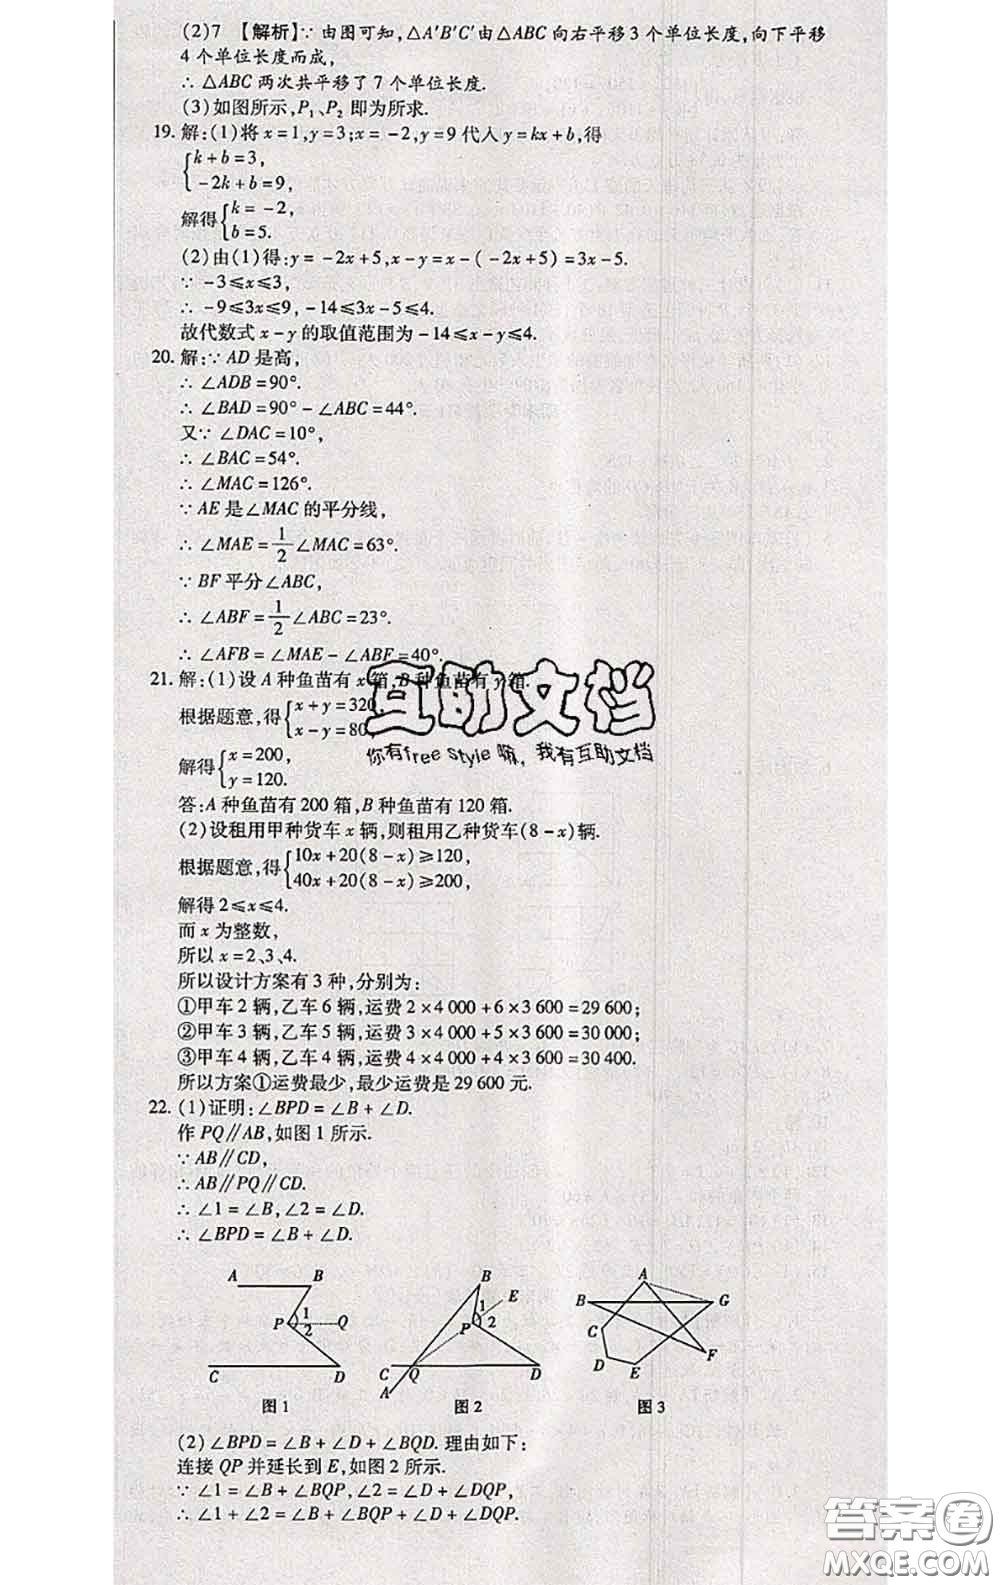 (2)7 【解析】∵ 由图可知,△A′B′C′由△ABC 向右平移 3 个单位长度,向下平移
4 个单位长度而成,
∴ △ABC 两次共平移了 7 个单位长度.
(3)如图所示,P₁、P₂ 即为所求.
19. 解:(1)将 x=1,y=3;x=-2,y=9 代入 y=kx+b,得
k+b=3,
-2k+b=9,
解得{k=-2,
b=5.
(2)由(1)得:y=-2x+5,x-y=x-(-2x+5)=3x-5.
∵ -3≤x≤3,
∴ -9≤3x≤9,-14≤3x-5≤4.
故代数式 x-y 的取值范围为-14≤x-y≤4.
20. 解:∵ AD 是高,
∴ ∠ADB=90°.
∴ ∠BAD=90°-∠ABC=44°.
又∵ ∠DAC=10°,
∴ ∠BAC=54°.
∴ ∠MAC=126°.
∵ AE 是∠MAC 的平分线,
∴ ∠MAE=1/2∠MAC=63°.
∵ BF 平分∠ABC,
∴ ∠ABF=1/2∠ABC=23°.
∴ ∠AFB=∠MAE-∠ABF=40°.
21. 解:(1)设 A 种鱼苗有 x 箱,B 种鱼苗有 y 箱.
根据题意,得{x+y=320,
x-y=80,
解得{x=200,
y=120.
答:A 种鱼苗有 200 箱,B 种鱼苗有 120 箱.
(2)设租用甲种货车 x 辆,则租用乙种货车(8-x)辆.
根据题意,得{10x+20(8-x)≥120,
40x+20(8-x)≥200,
解得 2≤x≤4.
而 x 为整数,
所以 x=2、3、4.
所以设计方案有 3 种,分别为:
①甲车 2 辆,乙车 6 辆,运费 2×4 000+6×3 600=29 600;
②甲车 3 辆,乙车 5 辆,运费 3×4 000+5×3 600=30 000;
③甲车 4 辆,乙车 4 辆,运费 4×4 000+4×3 600=30 400.
所以方案①运费最少,最少运费是 29 600 元.
22. (1)证明:∠BPD=∠B+∠D.
作 PQ∥AB,如图 1 所示.
∵ AB∥CD,
∴ AB∥PQ∥CD.
∴ ∠1=∠B,∠2=∠D.
∴ ∠BPD=∠B+∠D.
A B P 1 2 Q C D
图 1
B 1 E P 2 C Q D A
图 2
A B G C F D E
图 3
(2)∠BPD=∠B+∠D+∠BQD. 理由如下:
连接 QP 并延长到 E,如图 2 所示.
∵ ∠1=∠B+∠BQP,∠2=∠D+∠DQP,
∴ ∠1+∠2=∠B+∠BQP+∠D+∠DQP.
互助文档
你有free style 嘛, 我有互助文档
答案圈
MXQE.COM